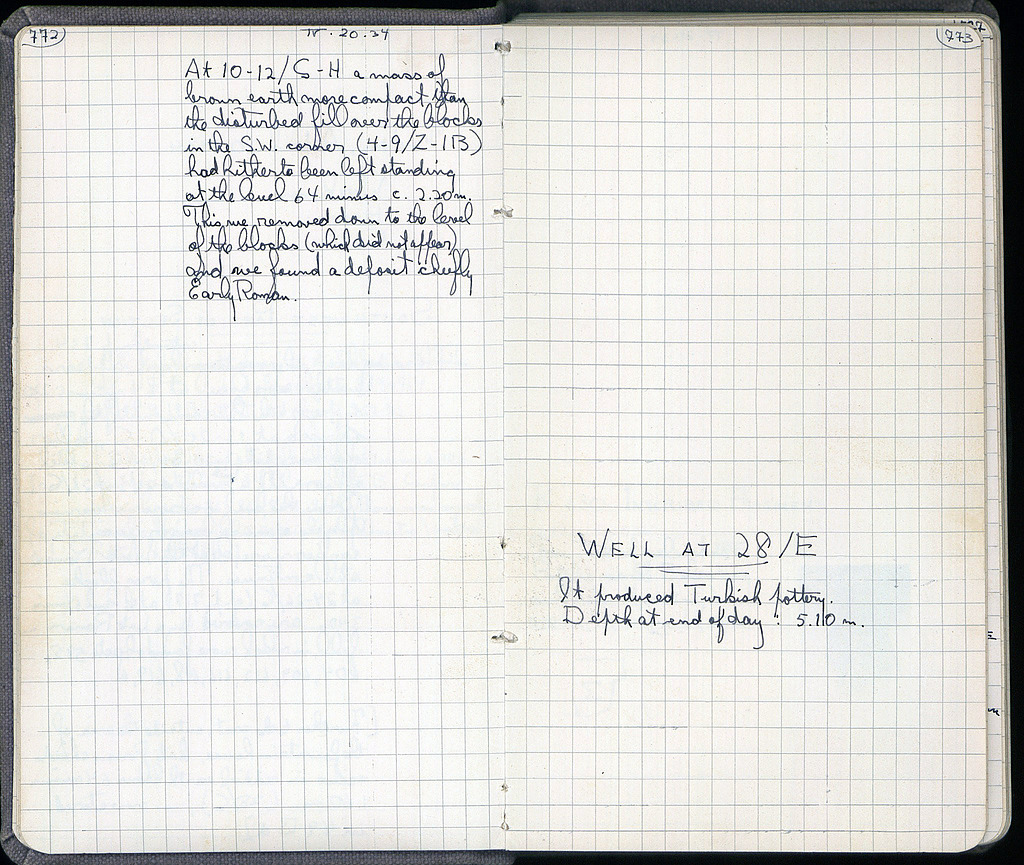 772
IV. 20.34
At 10-12/S-H a mass of
brown earth more compact than
the disturbed fill over the blocks
in the S.W. corner (4-9/Z-IB)
had hitherto been left standing
at the level 64 minus c. 2.20 m.
This we removed down to the level
of the blocks (which did not appear)
and we found a deposit chiefly
Early Roman.
773
WELL AT 28/E
It produced Turkish pottery.
Depth at end of day : 5.10 m.